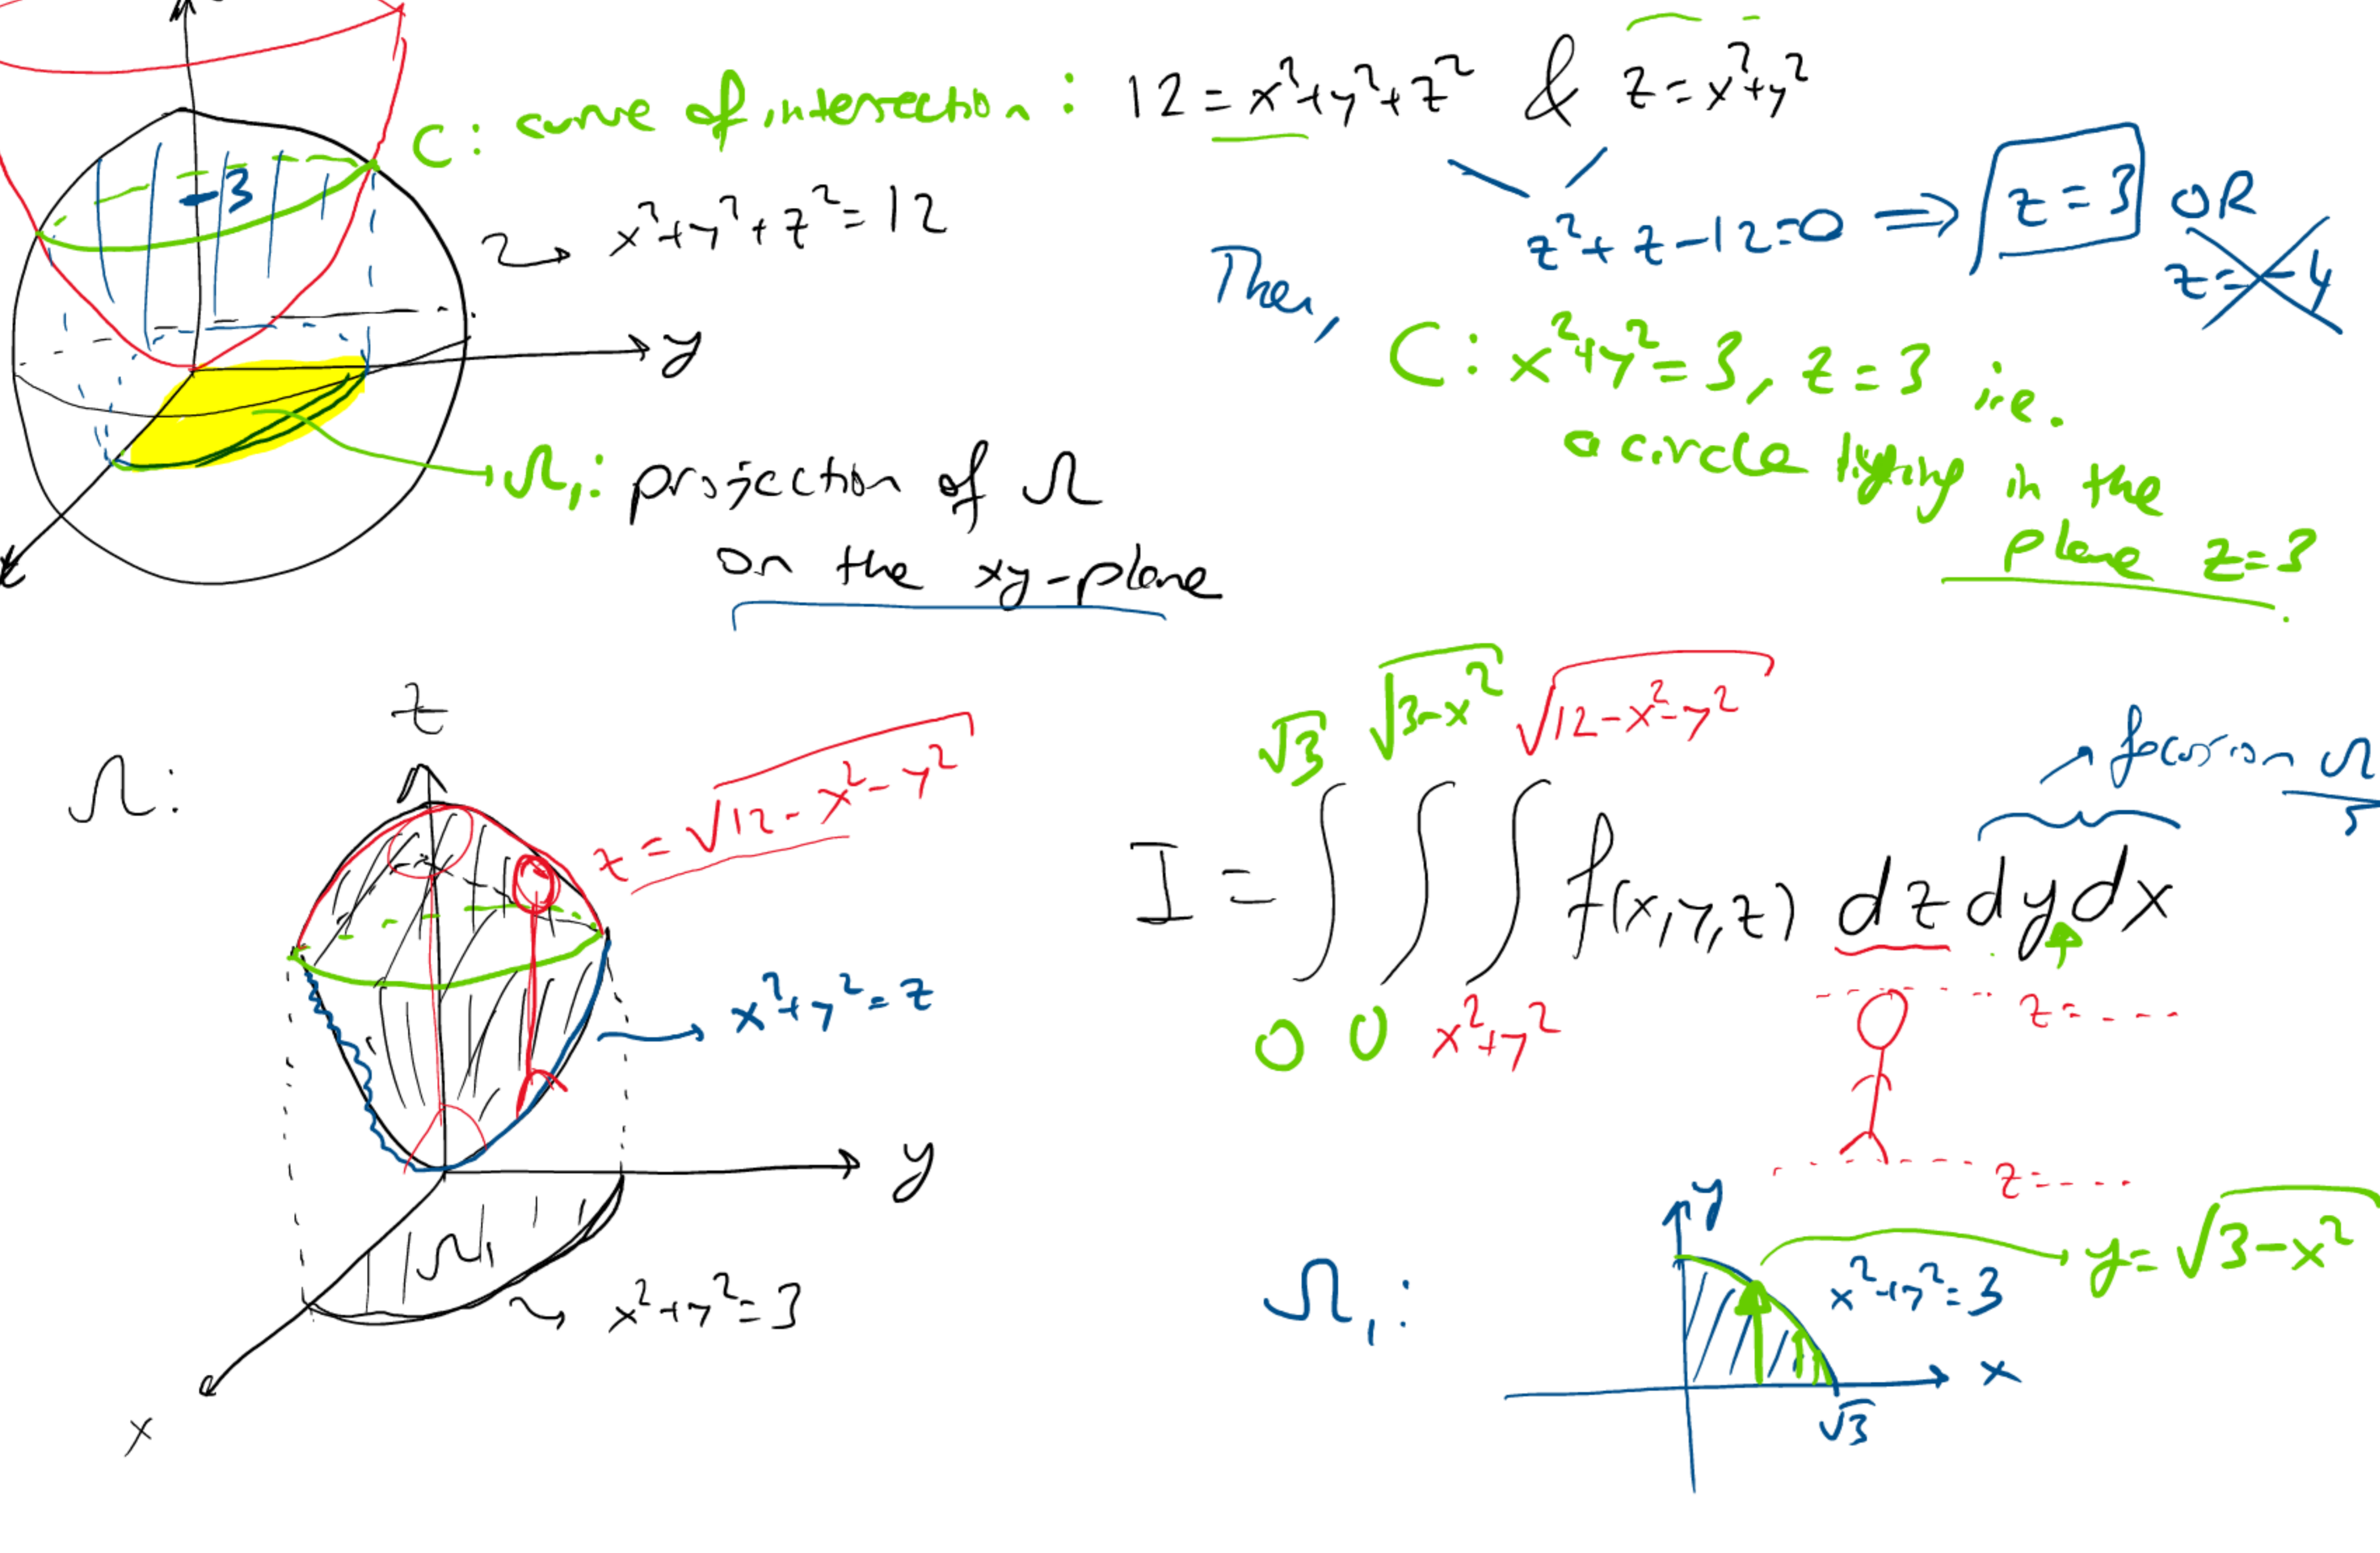 C: curve of intersection : 12 = x²+y²+z² & z = x²+y²
3
x²+y²+z²=12
z²+z-12=0 ⇒ z=3 OR
z=-4
Then,
y
C: x²+y²=3, z=3 i.e.
a circle lying in the
plane z=3
Ω₁: projection of Ω
on the xy-plane
z
Ω:
z = √12-x²-y²
x²+y²=z
y
Ω₁
x²+y²=3
x
√3 √3-x² √12-x²-y²
focus on Ω
I = ∫∫∫ f(x,y,z) dz dy dx
0 0 x²+y²
z=----
z=----
Ω₁:
y
y=√3-x²
x²+y²=3
x
√3